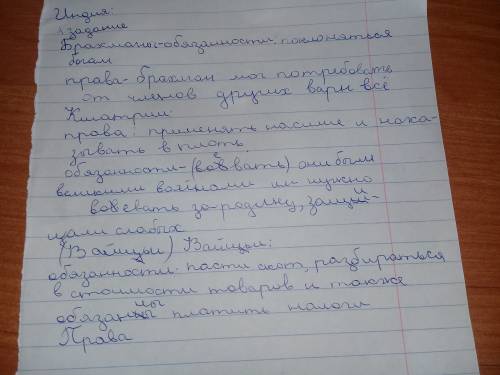 Индия:
1 задание
Брахманы-обязанности: поклоняться
богам
права-брахман мог потребовать
от членов других варн всё
Кшатрии:
права: применять насилие и нака-
зывать в плоть.
обязанности-(воевать) они были
великими воинами им нужно
воевать за родину, защи-
щали слабых
(Вайшьи) Вайшьи:
обязанности: пасти скот, разбираться
в стоимости товаров и также
обязаны платить налоги
Права